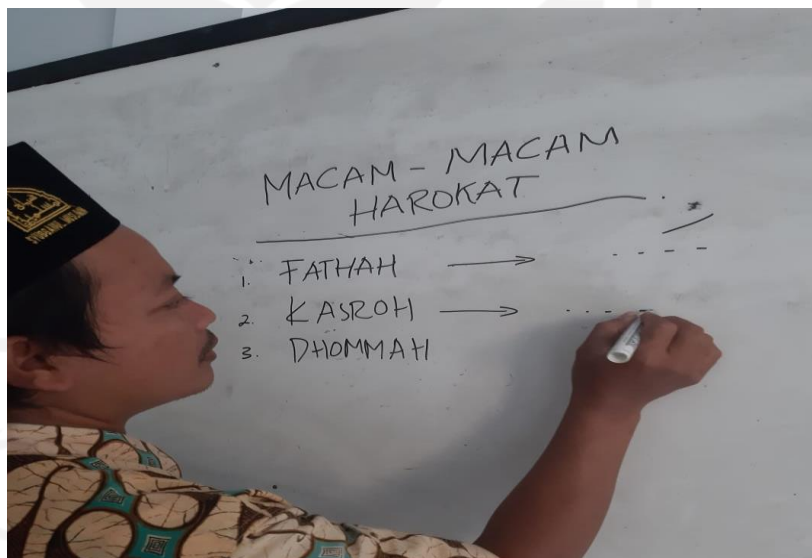 MACAM - MACAM
HAROKAT
1. FATHAH → - - - -
2. KASROH → - - - -
3. DHOMMAH